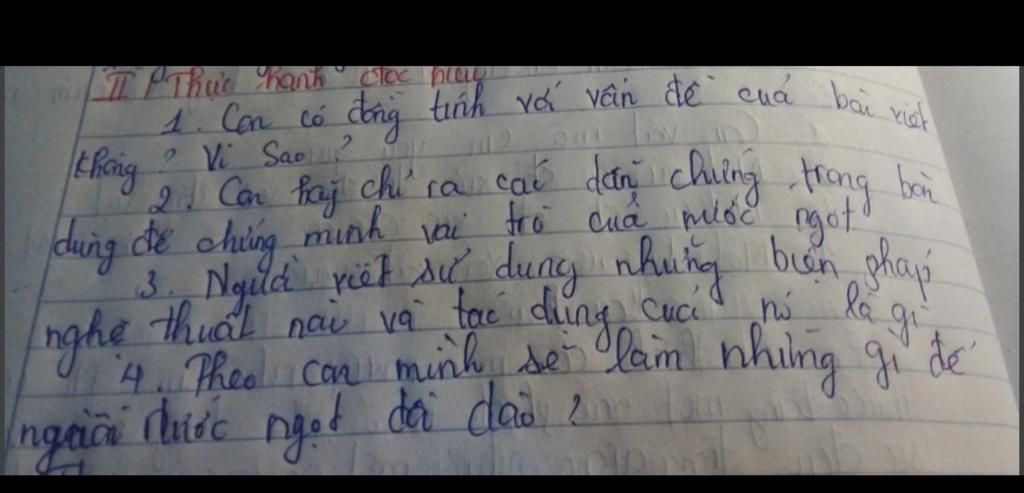 II, Thực hành đọc hiểu
1. Con có đồng tình với vấn đề của bài viết
không ? Vì Sao ?
2. Con hãy chỉ ra các dẫn chứng trong bài
dùng để chứng minh vai trò của nước ngọt
3. Người viết sử dụng những biện pháp
nghệ thuật nào và tác dụng của nó là gì
4. Theo con mình sẽ làm những gì để
nước ngọt dồi dào ?